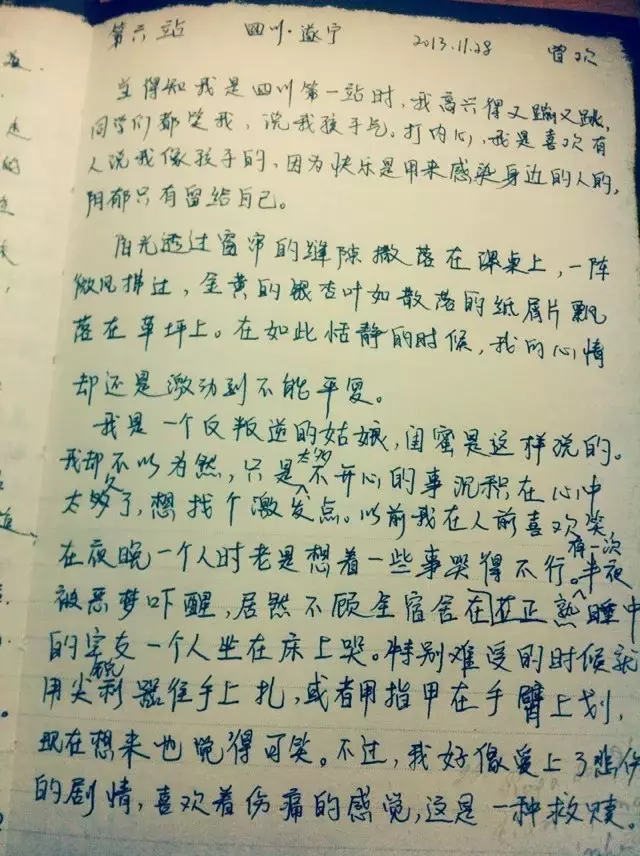 第六站 四川·遂宁 2013.11.28 曾欢
当得知我是四川第一站时，我高兴得又蹦又跳，
同学们都笑我，说我孩子气。打内心，我是喜欢有
人说我像孩子的，因为快乐是用来感染身边的人的，
阴郁只有留给自己。
阳光透过窗帘的缝隙撒落在课桌上，一阵
微风拂过，金黄的银杏叶如散落的纸屑片飘
落在草坪上。在如此恬静的时候，我的心情
却还是激动到不能平复。
我是一个反叛逆的姑娘，闺蜜是这样说的。
我却不以为然，只是太多不开心的事沉积在心中
太多久了，想找个激发点。以前我在人前喜欢笑
在夜晚一个人时老是想着一些事哭得不行。有一次半夜
被恶梦吓醒，居然不顾全宿舍在正熟睡中
的室友一个人坐在床上哭。特别难受的时候就
用尖锐器往手上扎，或者用指甲在手臂上划，
现在想来也觉得可笑。不过，我好像爱上了悲伤
的剧情，喜欢着伤痛的感觉，这是一种救赎。